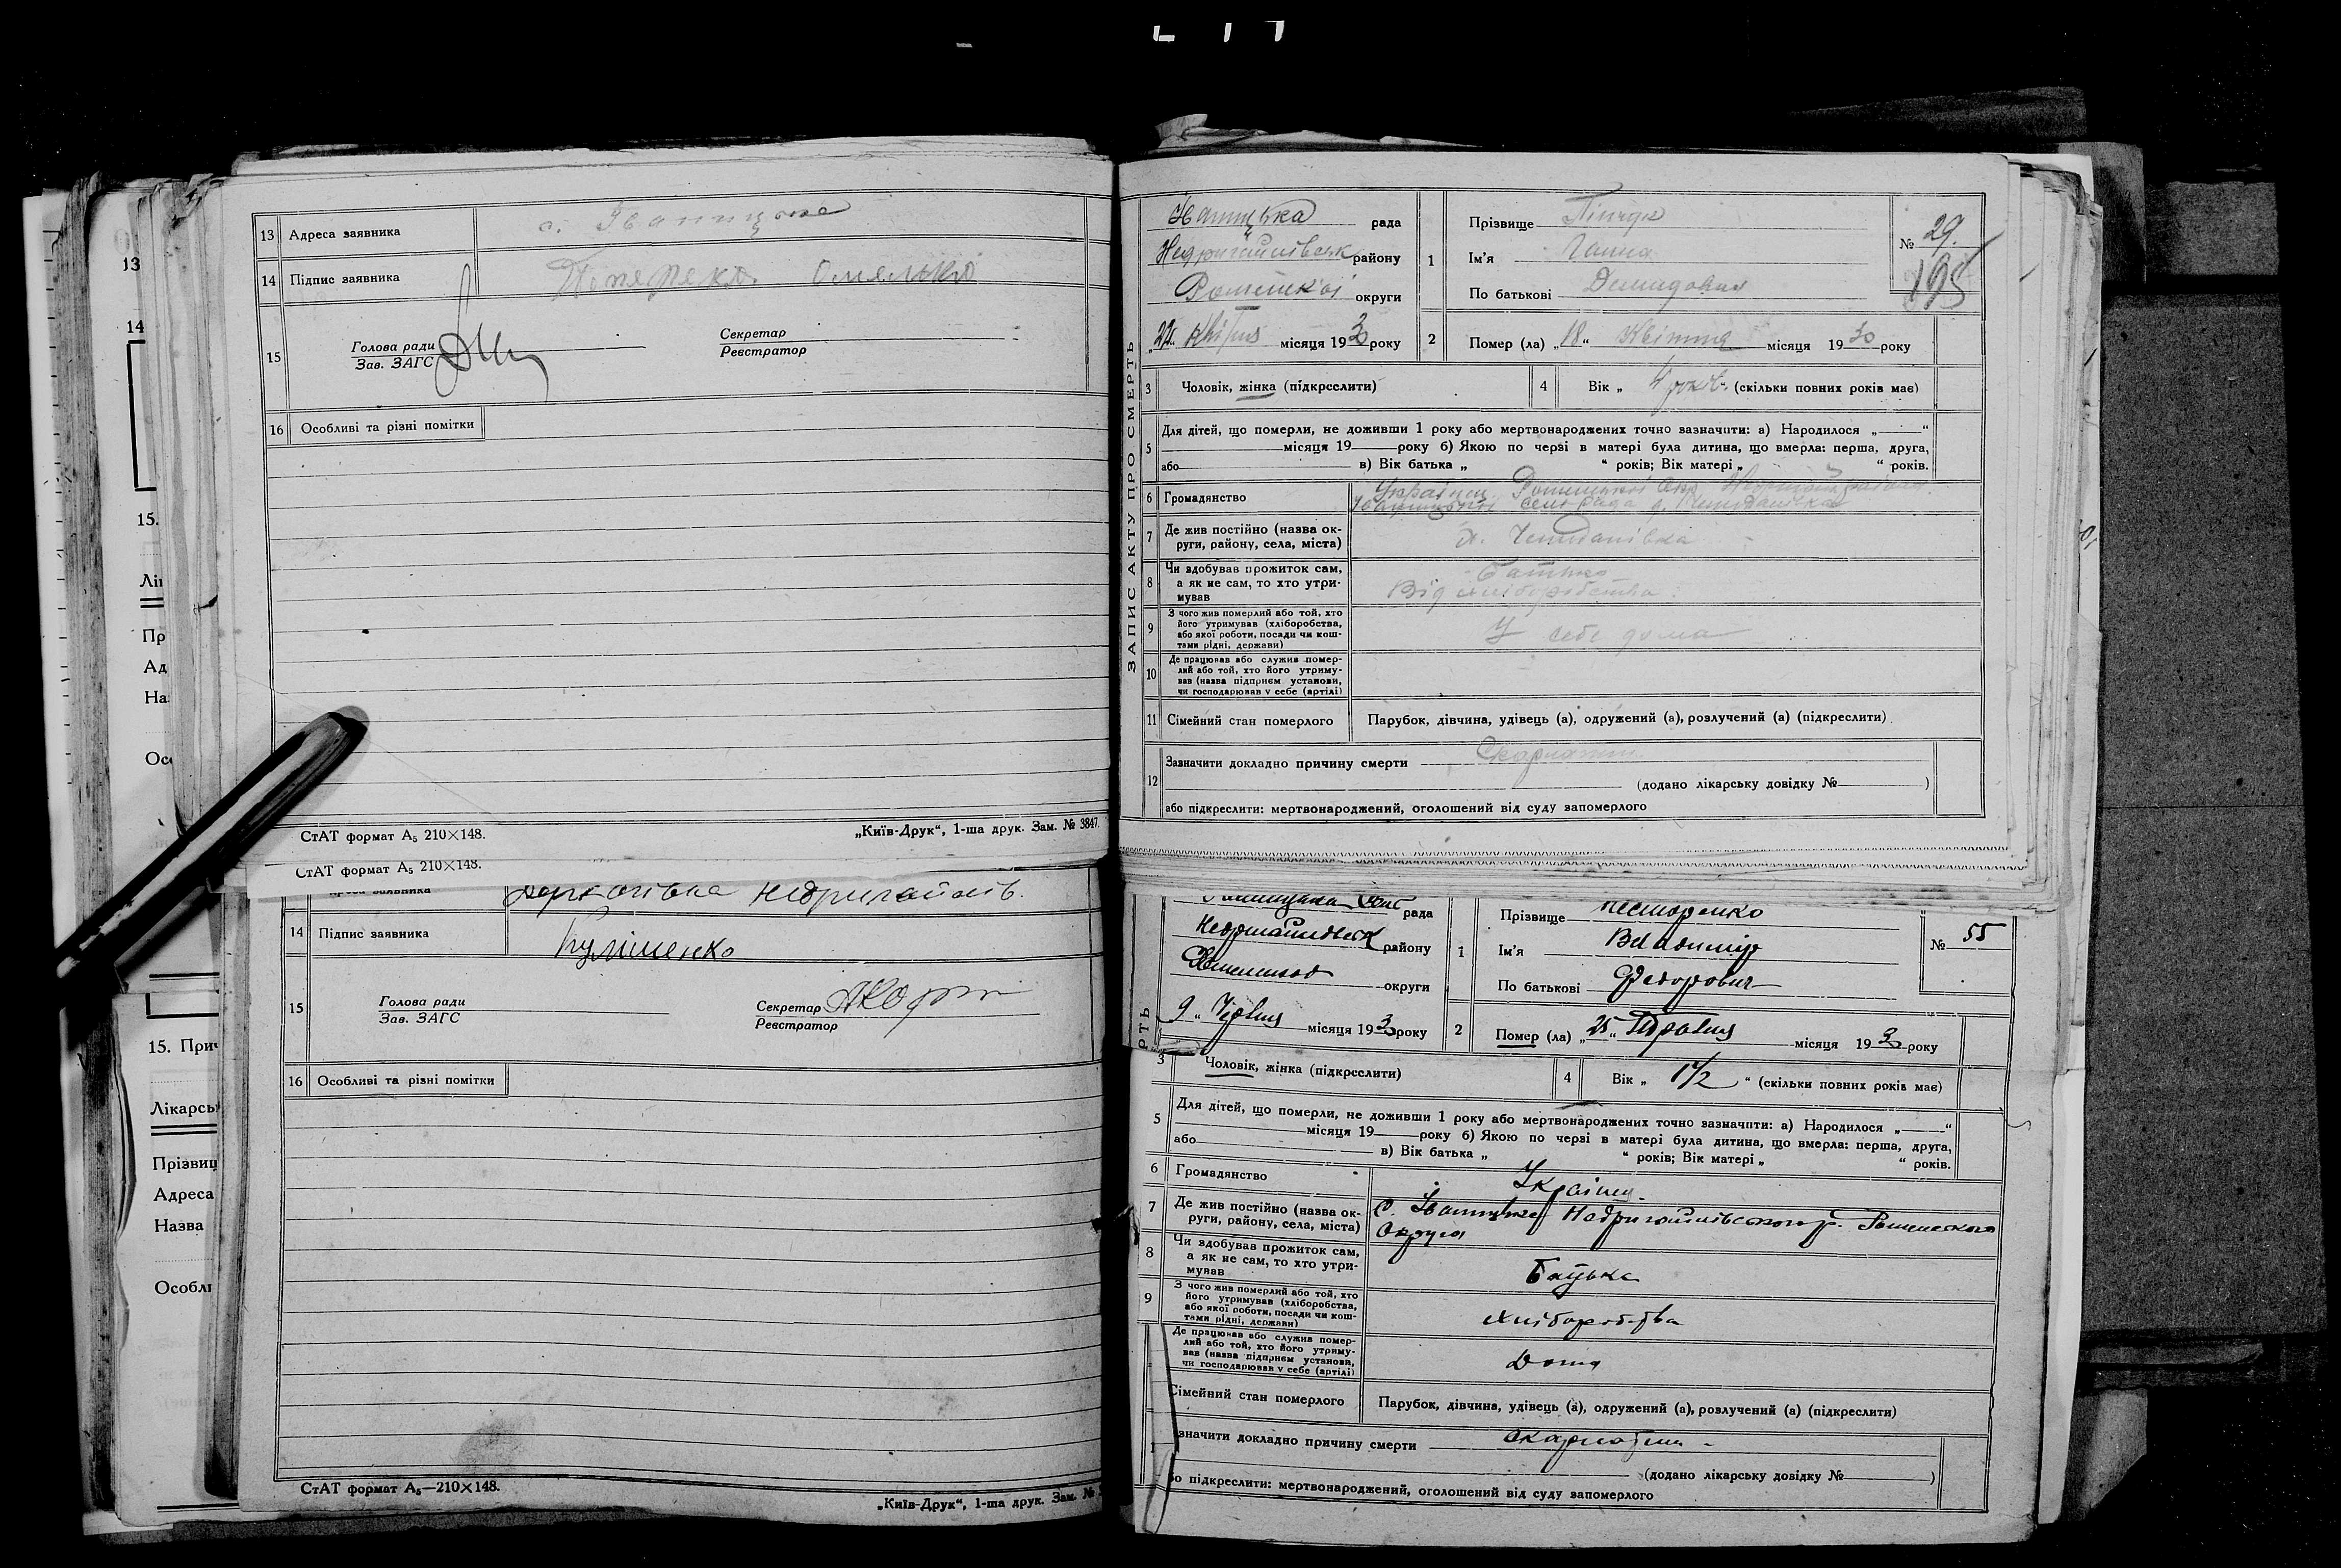 13 Адреса заявника с. Іваницьке
14 Підпис заявника Омелько
15 Голова ради
Зав. ЗАГС
Секретар
Реєстратор
16 Особливі та різні помітки
СтАТ формат А₅ 210×148.
„Київ-Друк“, 1-ша друк. Зам. № 3847.
СтАТ формат А₅ 210×148.
Адреса заявника Недригайлів.
14 Підпис заявника Кулішенко
15 Голова ради
Зав. ЗАГС
Секретар
Реєстратор
16 Особливі та різні помітки
СтАТ формат А₅—210×148.
„Київ-Друк“, 1-ша друк. Зам. №
13
14
15.
Лі
Пр
Ад
На
Осо
15. Прич
Лікарсь
Прізвищ
Адреса
Назва
Особлі
ЗАПИС АКТУ ПРО СМЕРТЬ
Іваницька рада
Недригайлівськ району
Роменської округи
„22“ Квітня місяця 1930 року
1 Прізвище
Ім'я Ганна
По батькові Демидовна
№ 29.
195
2 Помер (ла) „18“ Квітня місяця 1930 року
3 Чоловік, жінка (підкреслити)
4 Вік „ 4 рок. “ (скільки повних років має)
5 Для дітей, що померли, не доживши 1 року або мертвонароджених точно зазначити: а) Народилося „ “
місяця 19 року б) Якою по черзі в матері була дитина, що вмерла: перша, друга,
або в) Вік батька „ “ років; Вік матері „ “ років.
6 Громадянство
7 Де жив постійно (назва округи, району, села, міста) х. Чемоданівка
8 Чи здобував прожиток сам, а як не сам, то хто утримував Батько
Від хліборобства
9 З чого жив померлий або той, хто його утримував (хліборобства, або якої роботи, посади чи коштами рідні, держави) У себе дома
10 Де працював або служив померлий або той, хто його утримував (назва підприєм установи, чи господарював у себе (артілі)
11 Сімейний стан померлого Парубок, дівчина, удівець (а), одружений (а), розлучений (а) (підкреслити)
12 Зазначити докладно причину смерти Скарлатин
(додано лікарську довідку № )
або підкреслити: мертвонароджений, оголошений від суду запомерлого
рада
Недригайлівськ району
округи
9 „ Червня місяця 1930 року
1 Прізвище Несторенко
Ім'я Владимир
По батькові Федорович
№ 55
2 Помер (ла) „25“ Травня місяця 1930 року
РТЬ
3 Чоловік, жінка (підкреслити)
4 Вік „ 1 1/2 “ (скільки повних років має)
5 Для дітей, що померли, не доживши 1 року або мертвонароджених точно зазначити: а) Народилося „ “
місяця 19 року б) Якою по черзі в матері була дитина, що вмерла: перша, друга,
або в) Вік батька „ “ років; Вік матері „ “ років.
6 Громадянство Україн.
7 Де жив постійно (назва округи, району, села, міста) С. Іваницьке Недригайлівського р. Роменского
Округа
8 Чи здобував прожиток сам, а як не сам, то хто утримував Батька
9 З чого жив померлий або той, хто його утримував (хліборобства, або якої роботи, посади чи коштами рідні, держави) Хліборобства
Де працював або служив померлий або той, хто його утримував (назва підприєм установи, чи господарював у себе (артілі) Дома
Сімейний стан померлого Парубок, дівчина, удівець (а), одружений (а), розлучений (а) (підкреслити)
значити докладно причину смерти скарлатин
(додано лікарську довідку № )
бо підкреслити: мертвонароджений, оголошений від суду запомерлого